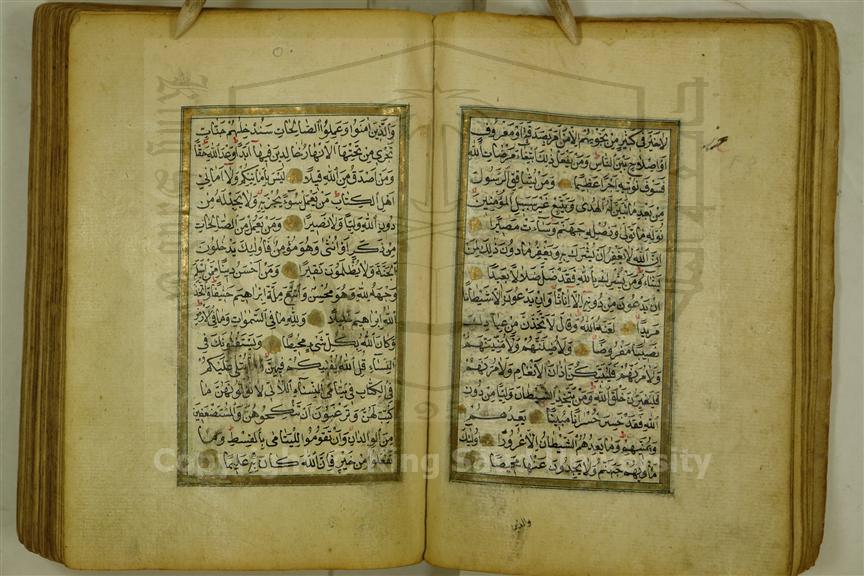 لا خير في كثير من نجويهم الا من امر بصدقة او معروف
او اصلاح بين الناس ومن يفعل ذلك ابتغاء مرضات الله
فسوف نؤتيه اجرا عظيما ومن يشاقق الرسول
من بعد ما تبين له الهدى ويتبع غير سبيل المؤمنين
نوله ما تولى ونصله جهنم وساءت مصيرا
ان الله لا يغفر ان يشرك به ويغفر ما دون ذلك لمن
يشاء ومن يشرك بالله فقد ضل ضلالا بعيدا
ان يدعون من دونه الا اناثا وان يدعون الا شيطانا
مريدا لعنه الله وقال لاتخذن من عبادك
نصيبا مفروضا ولاضلنهم ولامنينهم
ولامرنهم فليبتكن اذان الانعام ولامرنهم
فليغيرن خلق الله ومن يتخذ الشيطان وليا من دون
الله فقد خسر خسرانا مبينا يعدهم
ويمنيهم وما يعدهم الشيطان الا غرورا اولئك
ماويهم جهنم ولا يجدون عنها محيصا
والذين
والذين امنوا وعملوا الصالحات سندخلهم جنات
تجري من تحتها الانهار خالدين فيها ابدا وعد الله حقا
ومن اصدق من الله قيلا ليس بامانيكم ولا اماني
اهل الكتاب من يعمل سوءا يجز به ولا يجد له من
دون الله وليا ولا نصيرا ومن يعمل من الصالحات
من ذكر او انثى وهو مؤمن فاولئك يدخلون
الجنة ولا يظلمون نقيرا ومن احسن دينا ممن اسلم
وجهه لله وهو محسن واتبع ملة ابراهيم حنيفا واتخذ
الله ابراهيم خليلا ولله ما في السموات وما في الارض
وكان الله بكل شيء محيطا ويستفتونك في
النساء قل الله يفتيكم فيهن وما يتلى عليكم
في الكتاب في يتامى النساء اللاتي لا تؤتونهن ما
كتب لهن وترغبون ان تنكحوهن والمستضعفين
من الولدان وان تقوموا لليتامى بالقسط وما
تفعلوا من خير فان الله كان به عليما
Copyright © King Saud University